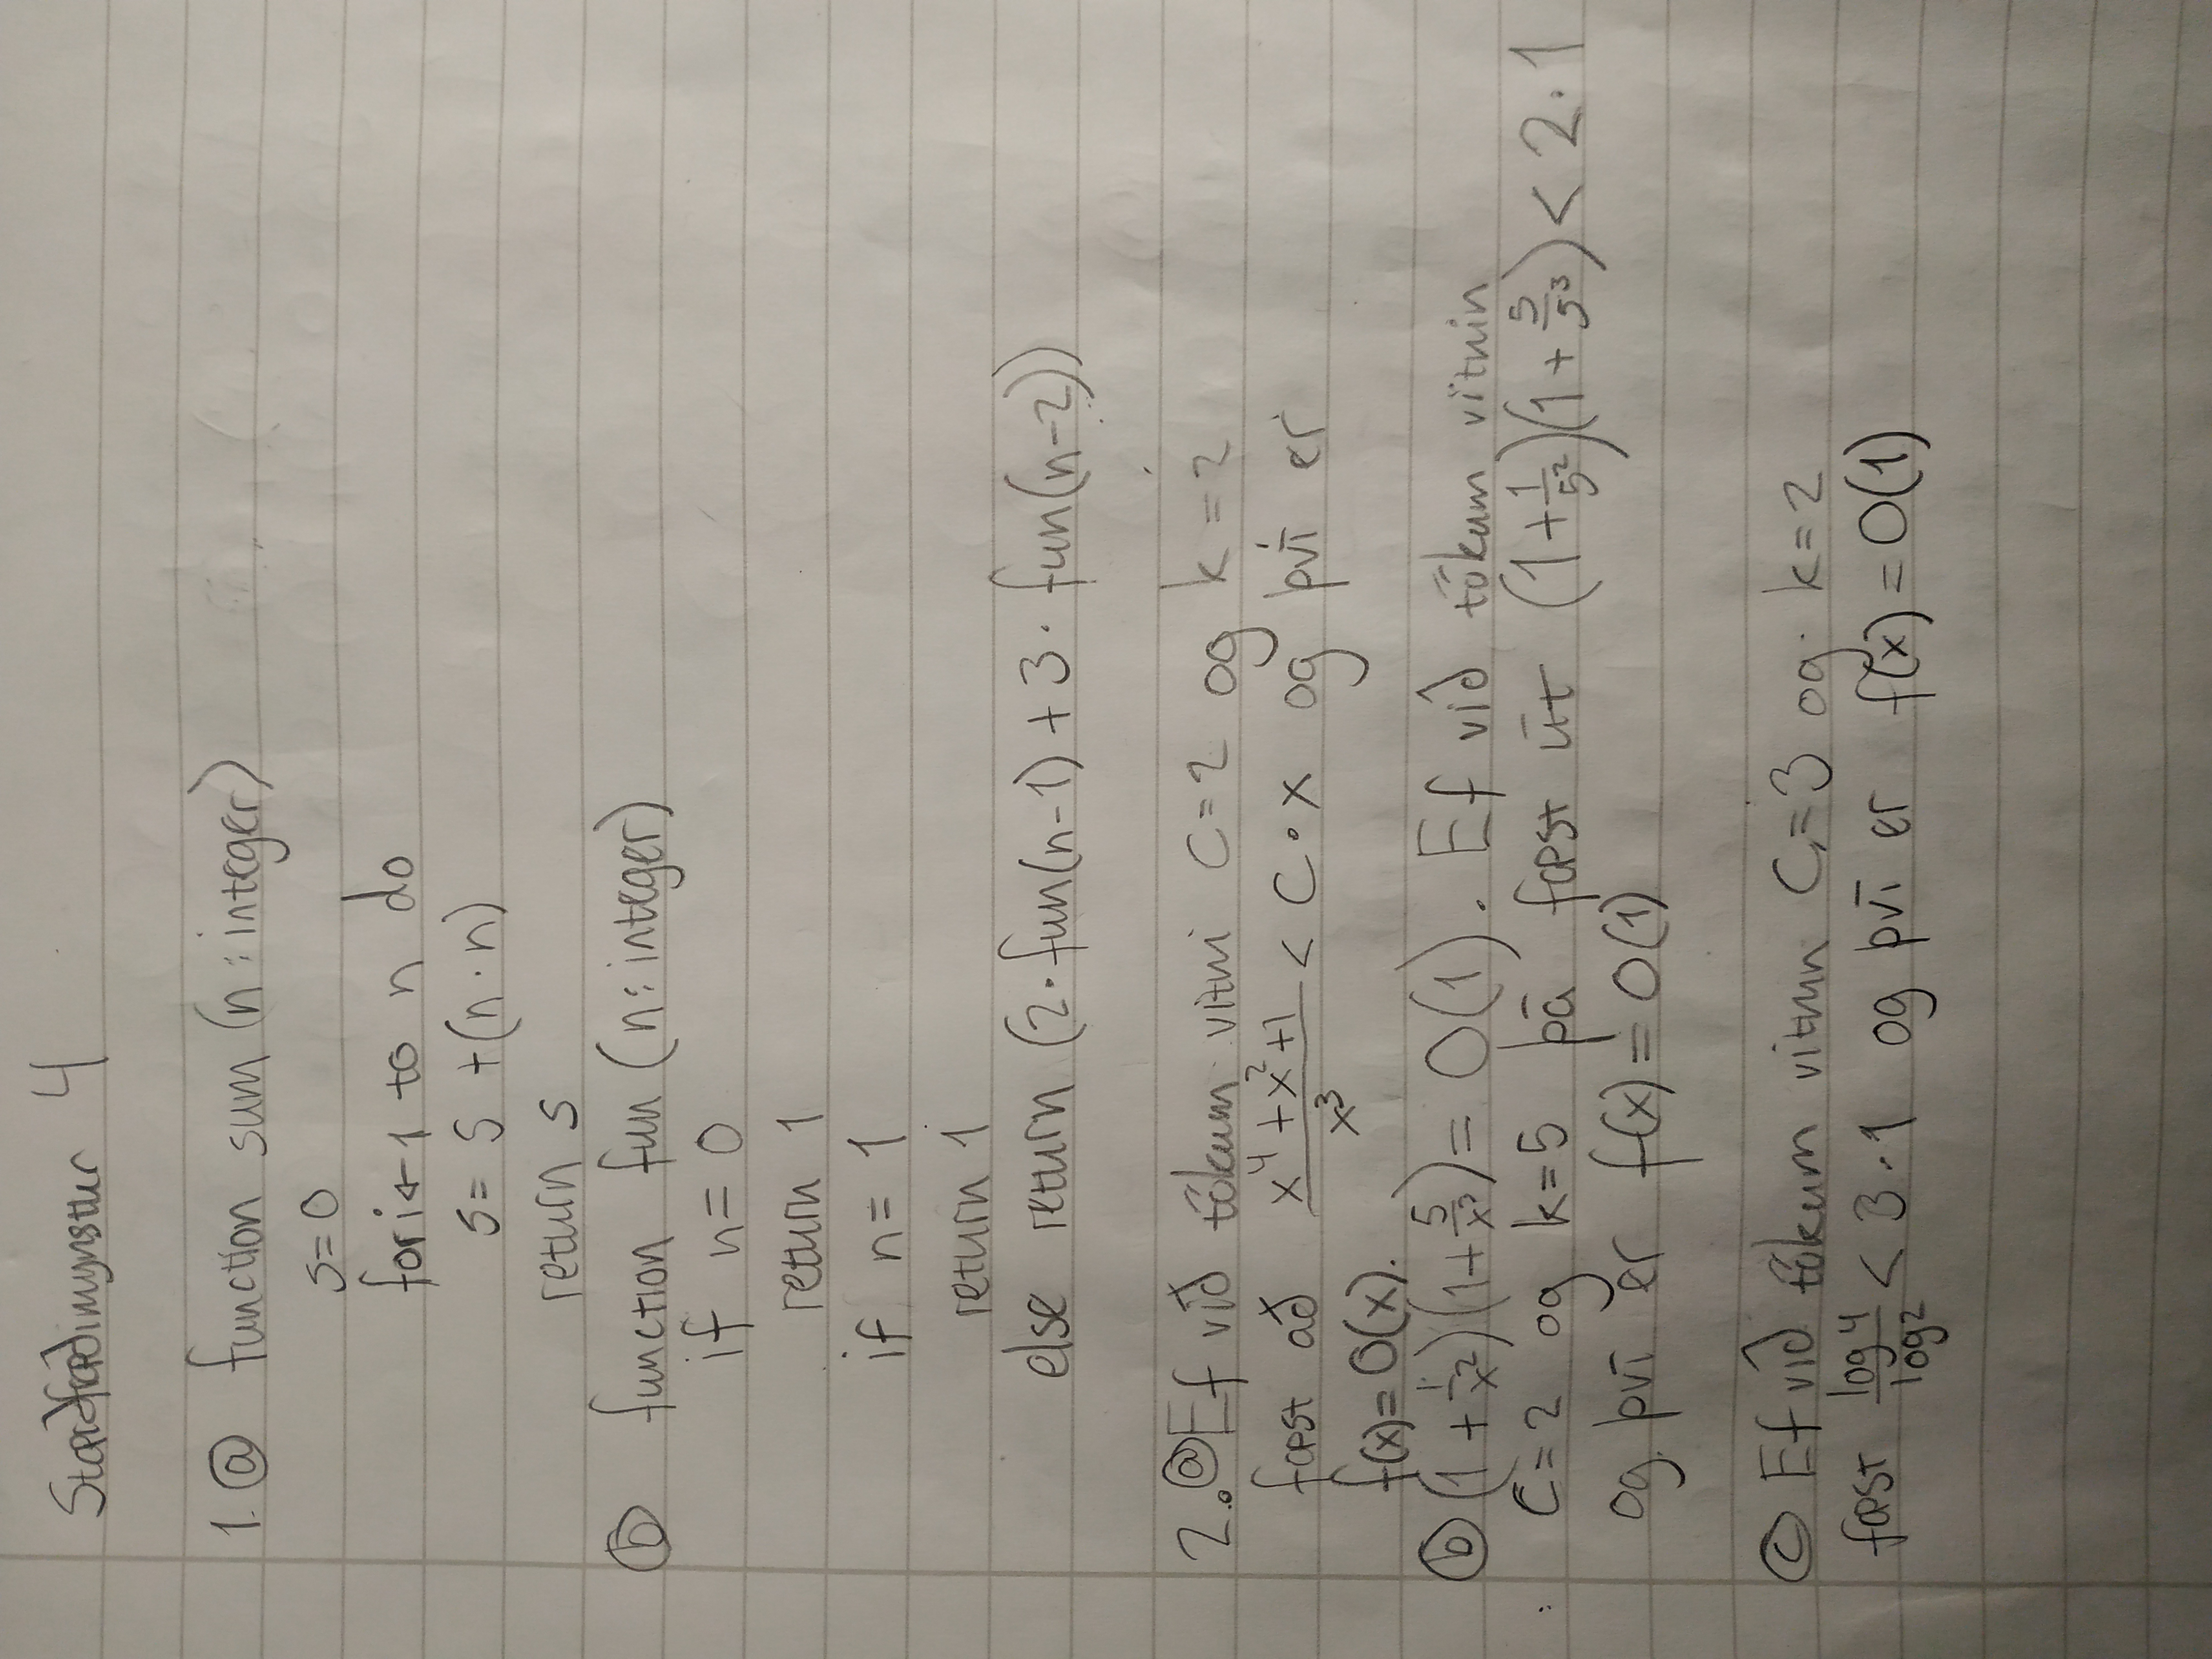 Stærðfræðimynstur 4
1. ⓐ function sum (n: integer)
s=0
for i ← 1 to n do
s = s + (n · n)
return s
ⓑ function fun (n: integer)
if n = 0
return 1
if n = 1
return 1
else return (2·fun(n-1) + 3·fun(n-2))
2. ⓐ Ef við tökum vitni C=2 og k=2
fæst að (x⁴+x²+1)/x³ < C·x og því er
f(x) = O(x).
ⓑ (1 + 1/x²)(1 + 5/x³) = O(1). Ef við tökum vitnin
C=2 og k=5 þá fæst út (1 + 1/5²)(1 + 5/5³) < 2·1
og því er f(x) = O(1)
ⓒ Ef við tökum vitnin C=3 og k=2
fæst log4/log2 < 3·1 og því er f(x) = O(1)